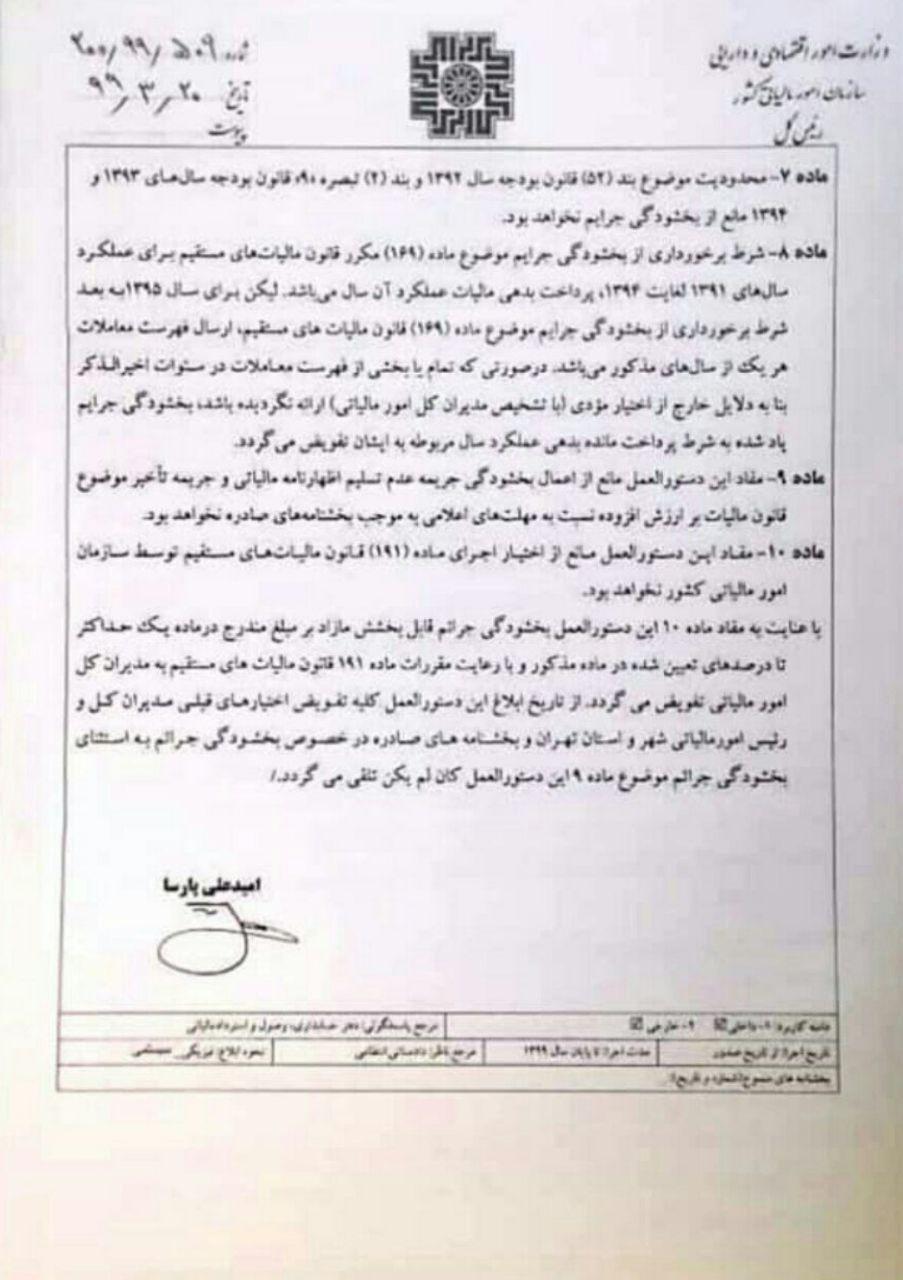 وزارت امور اقتصادی و دارایی
سازمان امور مالیاتی کشور
رئیس کل
شماره: ۲۰۰/۹۹/۵۰۹
تاریخ: ۹۹/۳/۲۰
پیوست
ماده ۷- محدودیت موضوع بند (۵۲) قانون بودجه سال ۱۳۹۲ و بند (۲) تبصره ۹» قانون بودجه سال‌های ۱۳۹۳ و
۱۳۹۴ مانع از بخشودگی جرایم نخواهد بود.
ماده ۸- شرط برخورداری از بخشودگی جرایم موضوع ماده (۱۶۹) مکرر قانون مالیات‌های مستقیم برای عملکرد
سال‌های ۱۳۹۱ لغایت ۱۳۹۴، پرداخت بدهی مالیات عملکرد آن سال می‌باشد. لیکن برای سال ۱۳۹۵به بعد
شرط برخورداری از بخشودگی جرایم موضوع ماده (۱۶۹) قانون مالیات های مستقیم، ارسال فهرست معاملات
هر یک از سال‌های مذکور می‌باشد. درصورتی که تمام یا بخشی از فهرست معاملات در سنوات اخیرالذکر
بنا به دلایل خارج از اختیار مؤدی (با تشخیص مدیران کل امور مالیاتی) ارائه نگردیده باشد، بخشودگی جرایم
یاد شده به شرط پرداخت مانده بدهی عملکرد سال مربوطه به ایشان تفویض می‌گردد.
ماده ۹- مفاد این دستورالعمل مانع از اعمال بخشودگی جریمه عدم تسلیم اظهارنامه مالیاتی و جریمه تأخیر موضوع
قانون مالیات بر ارزش افزوده نسبت به مهلت‌های اعلامی به موجب بخشنامه‌های صادره نخواهد بود.
ماده ۱۰- مفاد این دستورالعمل مانع از اختیار اجرای ماده (۱۹۱) قانون مالیات‌های مستقیم توسط سازمان
امور مالیاتی کشور نخواهد بود.
با عنایت به مفاد ماده ۱۰ این دستورالعمل بخشودگی جرائم قابل بخشش مازاد بر مبلغ مندرج درماده یک حداکثر
تا درصدهای تعیین شده در ماده مذکور و با رعایت مقررات ماده ۱۹۱ قانون مالیات های مستقیم به مدیران کل
امور مالیاتی تفویض می گردد. از تاریخ ابلاغ این دستورالعمل کلیه تفویض اختیارهای قبلی مدیران کل و
رئیس امورمالیاتی شهر و استان تهران و بخشنامه های صادره در خصوص بخشودگی جرائم به استثنای
بخشودگی جرائم موضوع ماده ۹ این دستورالعمل کان لم یکن تلقی می گردد./
امیدعلی پارسا
دامنه کاربرد: ۱- داخلی ☑ ۲- خارجی ☑ مرجع پاسخگوئی: دفتر حسابداری، وصول و استرداد مالیاتی
تاریخ اجرا: از تاریخ صدور مدت اجرا: تا پایان سال ۱۳۹۹ مرجع ناظر: دادستانی انتظامی نحوه ابلاغ: فیزیکی_ سیستمی
بخشنامه های منسوخ(شماره و تاریخ):